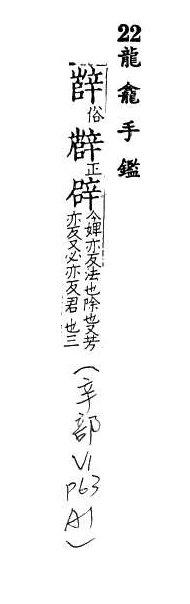 22 龍龕手鑑
俗
正
辟
今婢亦反法也除也又芳
亦反又必亦反君也三
(辛部 V1 P63 A1)